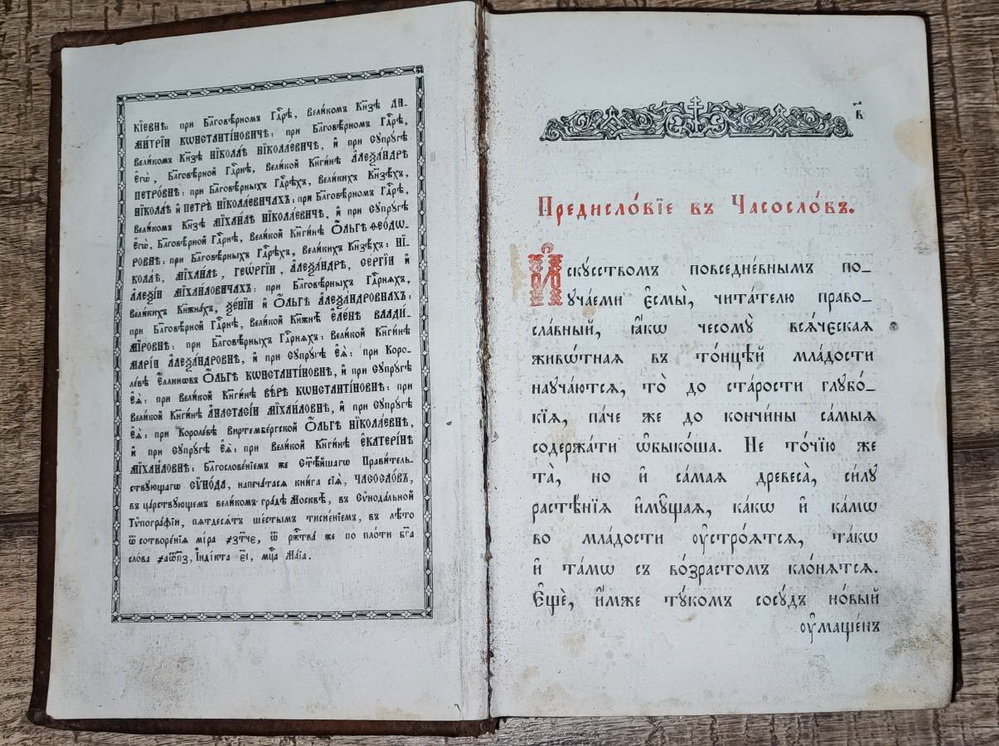 кі́евнѣ: при Бл҃говѣ́рномъ Гдⷭ҇рѣ, Вели́комъ Кн҃зѣ Ди-
ми́трїи Кѡнстанті́новичѣ: при Бл҃говѣ́рномъ Гдⷭ҇рѣ,
Вели́комъ Кн҃зѣ Нїкола́ѣ Нїкола́евичѣ, и҆ при Сꙋпрꙋ́гѣ
Е҆гѡ̀, Бл҃говѣ́рной Гдⷭ҇рнѣ, Вели́кой Кн҃ги́нѣ А҆леѯа́ндрѣ
Петро́внѣ: при Бл҃говѣ́рныхъ Гдⷭ҇рѣхъ, Вели́кихъ Кн҃зѣхъ,
Нїкола́ѣ и҆ Петрѣ̀ Нїкола́евичахъ: при Бл҃говѣ́рномъ Гдⷭ҇рѣ,
Вели́комъ Кн҃зѣ Мїхаи́лѣ Нїкола́евичѣ, и҆ при Сꙋпрꙋ́гѣ
Е҆гѡ̀, Бл҃говѣ́рной Гдⷭ҇рнѣ, Вели́кой Кн҃ги́нѣ Ѻ҆́льгѣ Ѳео́дѡ-
ровнѣ: при Бл҃говѣ́рныхъ Гдⷭ҇рѣхъ, Вели́кихъ Кн҃зѣхъ: Нї-
кола́ѣ, Мїхаи́лѣ, Геѡ́ргїи, А҆леѯа́ндрѣ, Се́ргїи и҆
А҆леѯі́и Мїха́иловичахъ: при Бл҃говѣ́рныхъ Гдⷭ҇рняхъ,
Вели́кихъ Кн҃жна́хъ, Ѯе́нїи и҆ Ѻ҆́льгѣ А҆леѯа́ндровнахъ:
при Бл҃говѣ́рной Гдⷭ҇рнѣ, Вели́кой Кн҃жнѣ̀ Е҆ле́нѣ Влади́-
мїровнѣ: при Бл҃говѣ́рныхъ Гдⷭ҇рняхъ: Вели́кой Кн҃ги́нѣ
Марі́и А҆леѯа́ндровнѣ, и҆ при Сꙋпрꙋ́гѣ Е҆ѧ̀: при Коро-
ле́вѣ Е҆́ллинѡвъ Ѻ҆́льгѣ Кѡнстанті́новнѣ, и҆ при Сꙋпрꙋ́гѣ
Е҆ѧ̀: при Вели́кой Кн҃ги́нѣ Вѣ́рѣ Кѡнстанті́новнѣ: при
Вели́кой Кн҃ги́нѣ А҆настасі́и Мїха́иловнѣ, и҆ при Сꙋпрꙋ́гѣ
Е҆ѧ̀: при Короле́вѣ Виртембе́ргской Ѻ҆́льгѣ Нїкола́евнѣ,
и҆ при Сꙋпрꙋ́гѣ Е҆ѧ̀: при Вели́кой Кн҃ги́нѣ Е҆катері́нѣ
Мїха́иловнѣ: Бл҃гослове́нїемъ же Ст҃ѣ́йшагѡ Прави́тель-
ствꙋющагѡ Сѷно́да, напеча́тася кни́га сїѧ̀, Часосло́въ,
въ ца́рствꙋющемъ вели́комъ гра́дѣ Москвѣ̀, въ Сѷнода́льной
Тѷпогра́фїи, пятьдеся́тъ шесты́мъ тисне́нїемъ, въ лѣ́то
ѿ сотворе́нїя мі́ра ҂зтче, ѿ ржⷭ҇тва̀ же по пло́ти бг҃а
сло́ва ҂аѡпз, і҆нді́кта е҃і, мцⷭ҇а Ма́їа.
в҃
Предисло́вїе въ Часосло́въ.
И҆скꙋ́сствомъ повседне́внымъ по-
ꙋча́еми є҆смы̀, чита́телю право-
сла́вный, ꙗ҆́кѡ чесомꙋ̀ вся́ческая
живѡ́тная въ то́нцѣй мла́дости
наꙋча́ются, то̀ до ста́рости глꙋбо́-
кїя, па́че же до кончи́ны са́мыя
содержа́ти ѡ҆быко́ша. Не то́чїю же
та̀, но и҆ са́мая древеса̀, си́лꙋ
расте́нїя и҆мꙋ́щая, ка́кѡ и҆ ка́мѡ
во мла́дости ᲂу҆стро́ятся, та́кѡ
и҆ та́мѡ съ во́зрастомъ кло́нятся.
Е҆щѐ, и҆́мже тꙋ́комъ сосꙋ́дъ но́вый
ᲂу҆ма́щенъ